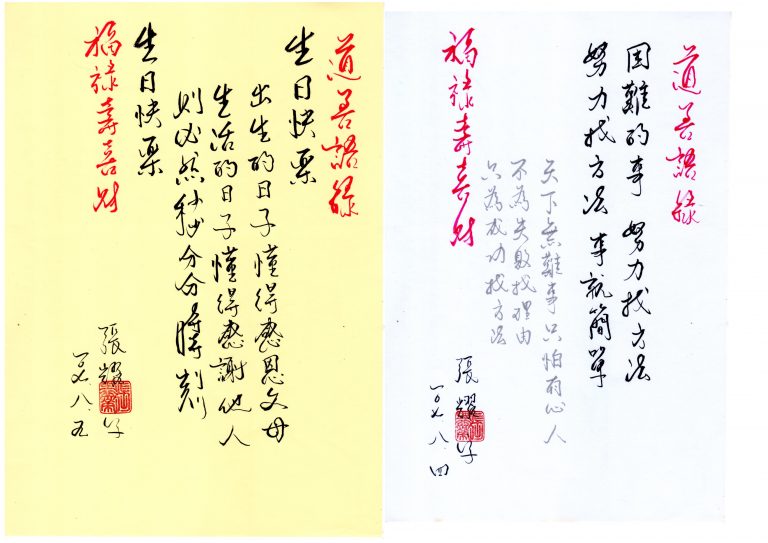 道善語錄
困難的事 努力找方法
努力找方法 事就簡單
天下無難事只怕有心人
不為失敗找理由
只為成功找方法
福祿壽喜財
張耀
一〇七.八.四
道善語錄
生日快樂
出生的日子懂得感恩父母
生活的日子懂得感謝他人
則必然秒秒分分時時刻刻
生日快樂
福祿壽喜財
張耀
一〇七.八.五